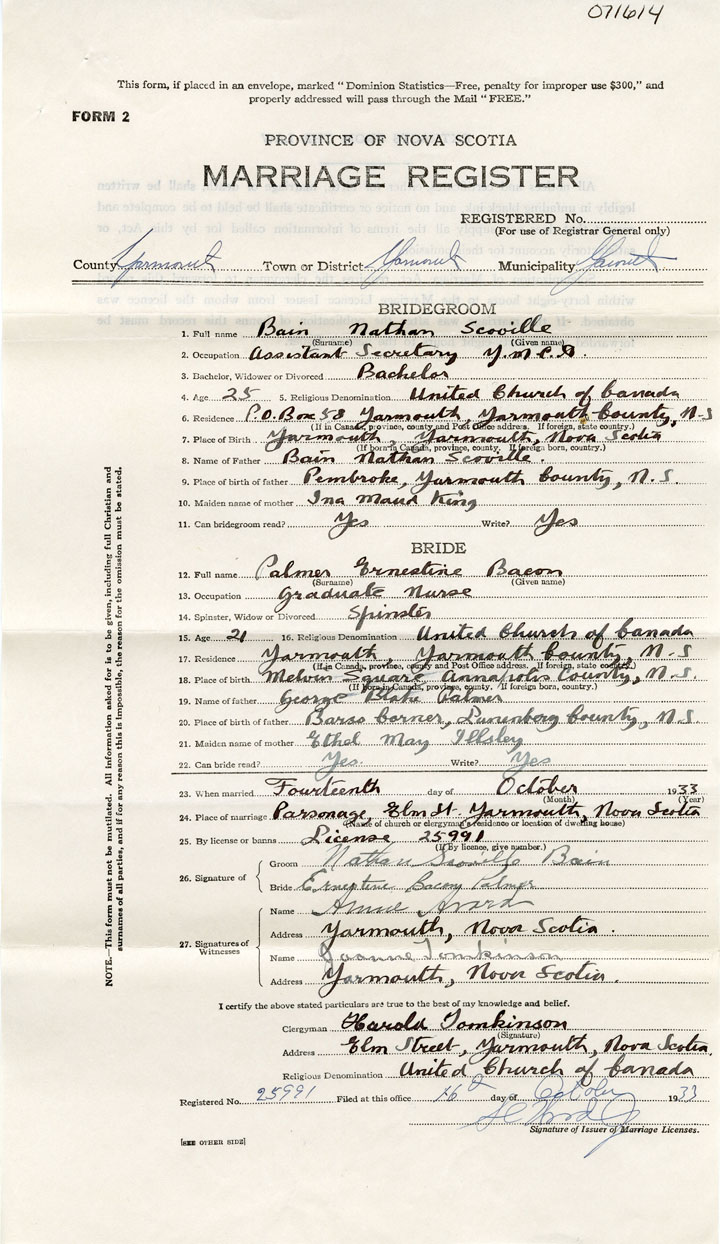 071614
This form, if placed in an envelope, marked "Dominion Statistics—Free, penalty for improper use $300," and
properly addressed will pass through the Mail "FREE."
FORM 2
PROVINCE OF NOVA SCOTIA
MARRIAGE REGISTER
REGISTERED No.
(For use of Registrar General only)
County Yarmouth Town or District Yarmouth Municipality
BRIDEGROOM
1. Full name Bain Nathan Scoville
(Surname) (Given name)
2. Occupation Assistant Secretary Y.M.C.A.
3. Bachelor, Widower or Divorced Bachelor
4. Age 25 5. Religious Denomination United Church of Canada
6. Residence P.O. Box 58 Yarmouth, Yarmouth County, N-S
(If in Canada, province, county and Post Office address. If foreign, state country.)
7. Place of Birth Yarmouth, Yarmouth, Nova Scotia
(If born in Canada, province, county. If foreign born, country.)
8. Name of Father Bain Nathan Scoville.
9. Place of birth of father Pembroke, Yarmouth County, N.S.
10. Maiden name of mother Ina Maud King
11. Can bridegroom read? Yes Write? Yes
BRIDE
12. Full name Palmer Ernestine Bacon
(Surname) (Given name)
13. Occupation Graduate Nurse
14. Spinster, Widow or Divorced Spinster
15. Age 21 16. Religious Denomination United Church of Canada
17. Residence Yarmouth, Yarmouth County, N-S
(If in Canada, province, county and Post Office address. If foreign, state country.)
18. Place of birth Melvin Square Annapolis County, N.S.
(If born in Canada, province, county. If foreign born, country.)
19. Name of father George Blake Palmer
20. Place of birth of father Barss Corner, Lunenberg County, N.S
21. Maiden name of mother Ethel May Illsley
22. Can bride read? Yes. Write? Yes
23. When married Fourteenth day of October 1933
(Month) (Year)
24. Place of marriage Parsonage, Elm St. Yarmouth, Nova Scotia
(Name of church or clergyman's residence or location of dwelling house)
25. By license or banns License 25991
(If by licence, give number.)
26. Signature of
Groom Nathan Scoville Bain
Bride Ernestine Bacon Palmer
27. Signatures of Witnesses
Name Annie Avard
Address Yarmouth, Nova Scotia.
Name Joanne Tomkinson
Address Yarmouth, Nova Scotia.
I certify the above stated particulars are true to the best of my knowledge and belief.
Clergyman Harold Tomkinson
(Signature)
Address Elm Street, Yarmouth, Nova Scotia.
Religious Denomination United Church of Canada
Registered No. 25991 Filed at this office 16th day of October 1933
Signature of Issuer of Marriage Licenses.
[SEE OTHER SIDE]
NOTE.—This form must not be mutilated. All information asked for is to be given, including full Christian and
surnames of all parties, and if for any reason this is impossible, the reason for the omission must be stated.